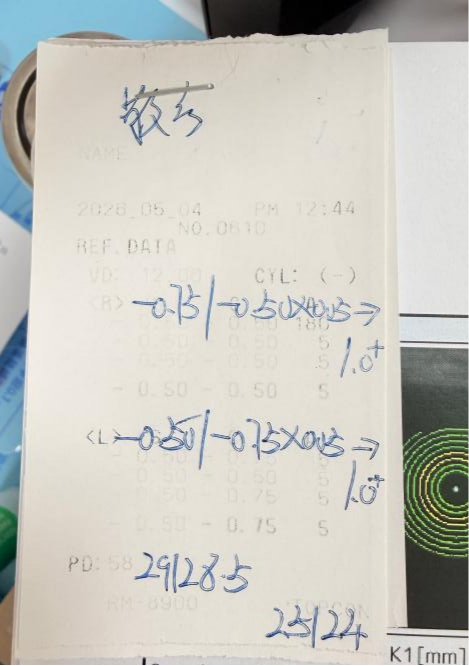 散
NAME
2026.05.04 PM 12:44
NO.0610
REF. DATA
VD: 12.00 CYL: (-)
<R> -0.75/-0.50×05→
180
5
1.0⁺
- 0.50 - 0.50 5
- 0.50 - 0.50 5
<L> -0.50/-0.75×05→
- 0.50 - 0.50 5
1.0⁺
0.50 - 0.75 5
- 0.50 - 0.75 5
PD: 58 29/28.5
RM-8900 TOPCON
25/24
K1[mm]